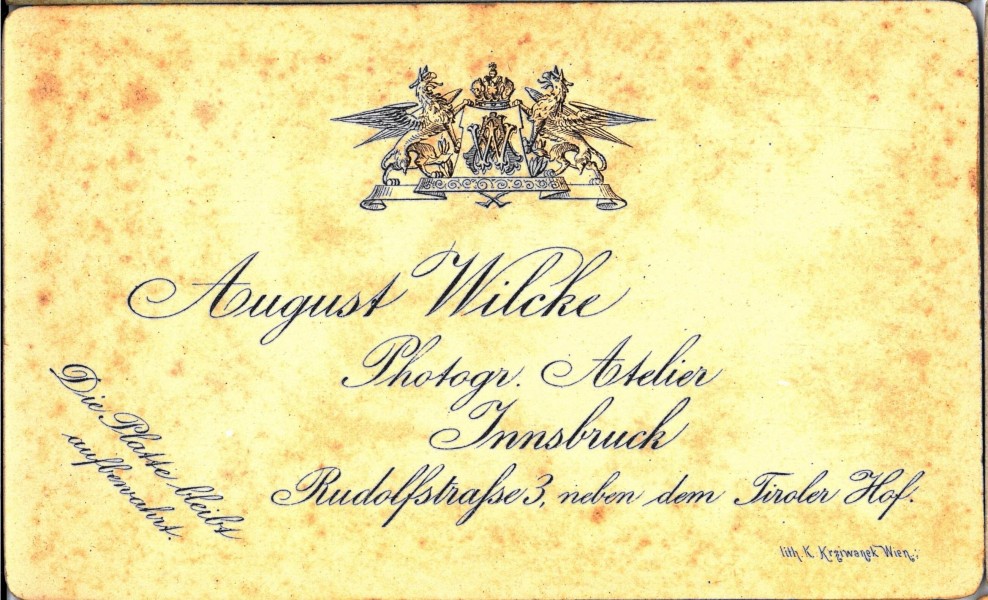 AW
August Wilcke
Photogr. Atelier
Innsbruck
Rudolfstraſse 3, neben dem Tiroler Hof.
Die Platte bleibt
aufbewahrt.
lith. K. Krziwanek Wien.